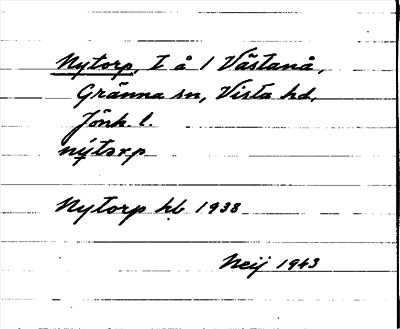 Nytorp, t å 1 Västanå,
Gränna sn, Vista hd,
Jönk. l.
nýtorp
Nytorp hb 1938
Neij 1943